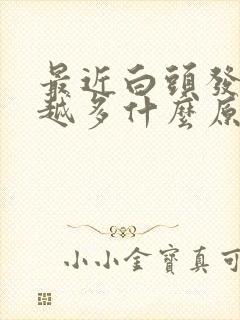 最近白頭發
越多什麼原
小小金寶真可